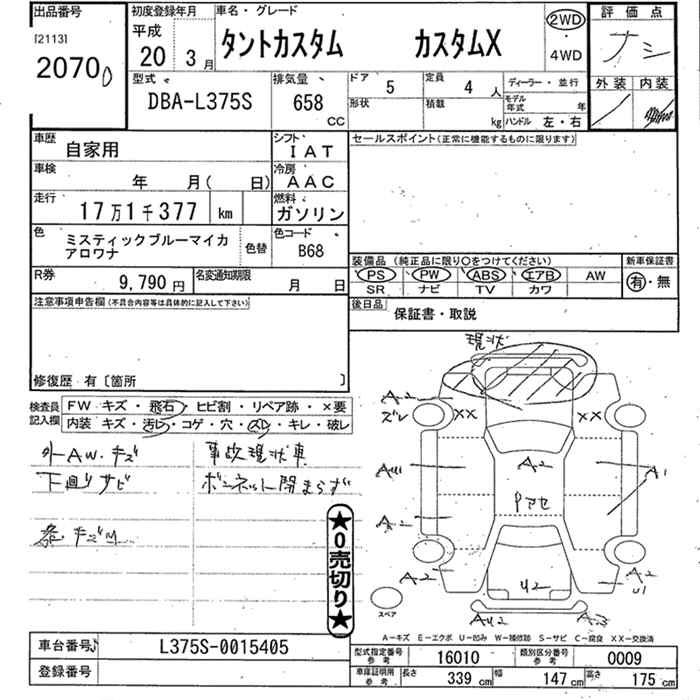 出品番号 初度登録年月 車名・グレード 2WD 評価点
[2113] 平成
2070 20 3月 タントカスタム カスタムX 4WD ナシ
型式 排気量 ドア 5 定員 4人 ディーラー・並行 外装 内装
DBA-L375S 658 CC 形状 積載 kg モデル年式 年
ハンドル 左・右
車歴 自家用 シフト IAT セールスポイント(正常に機能するものに限ります)
車検 年 月( 日) 冷房 AAC
走行 17万1千377 km 燃料 ガソリン
色 ミスティックブルーマイカ 色替 色コード B68
アロワナ
装備品 (純正品に限り○をつけてください) 新車保証書
R券 9,790円 名変通知期限 月 日 PS PW ABS エアB AW 有・無
SR ナビ TV カワ
注意事項申告欄(不具合内容等は具体的に記入して下さい) 後日品 保証書・取説
修復歴 有 〔箇所 〕
現状
検査員 FW キズ・飛石・ヒビ割・リペア跡・×要
記入欄 内装 キズ・汚レ・コゲ・穴・スレ・キレ・破レ
外AW.キズ 事故現状車
下廻りサビ ボンネット閉まらず
★0売切り★
A2 ズレ XX XX
A2 A1
Pアセ
A2
A2 U2 A2 U1
スペア
AU2
A-キズ E-エクボ U-凹み W-補修跡 S-サビ C-腐食 XX-交換済
車台番号 L375S-0015405 型式指定番号 参考 16010 類別区分番号 参考 0009
登録番号 車庫証明用 参考 長さ 339cm 幅 147cm 高さ 175cm